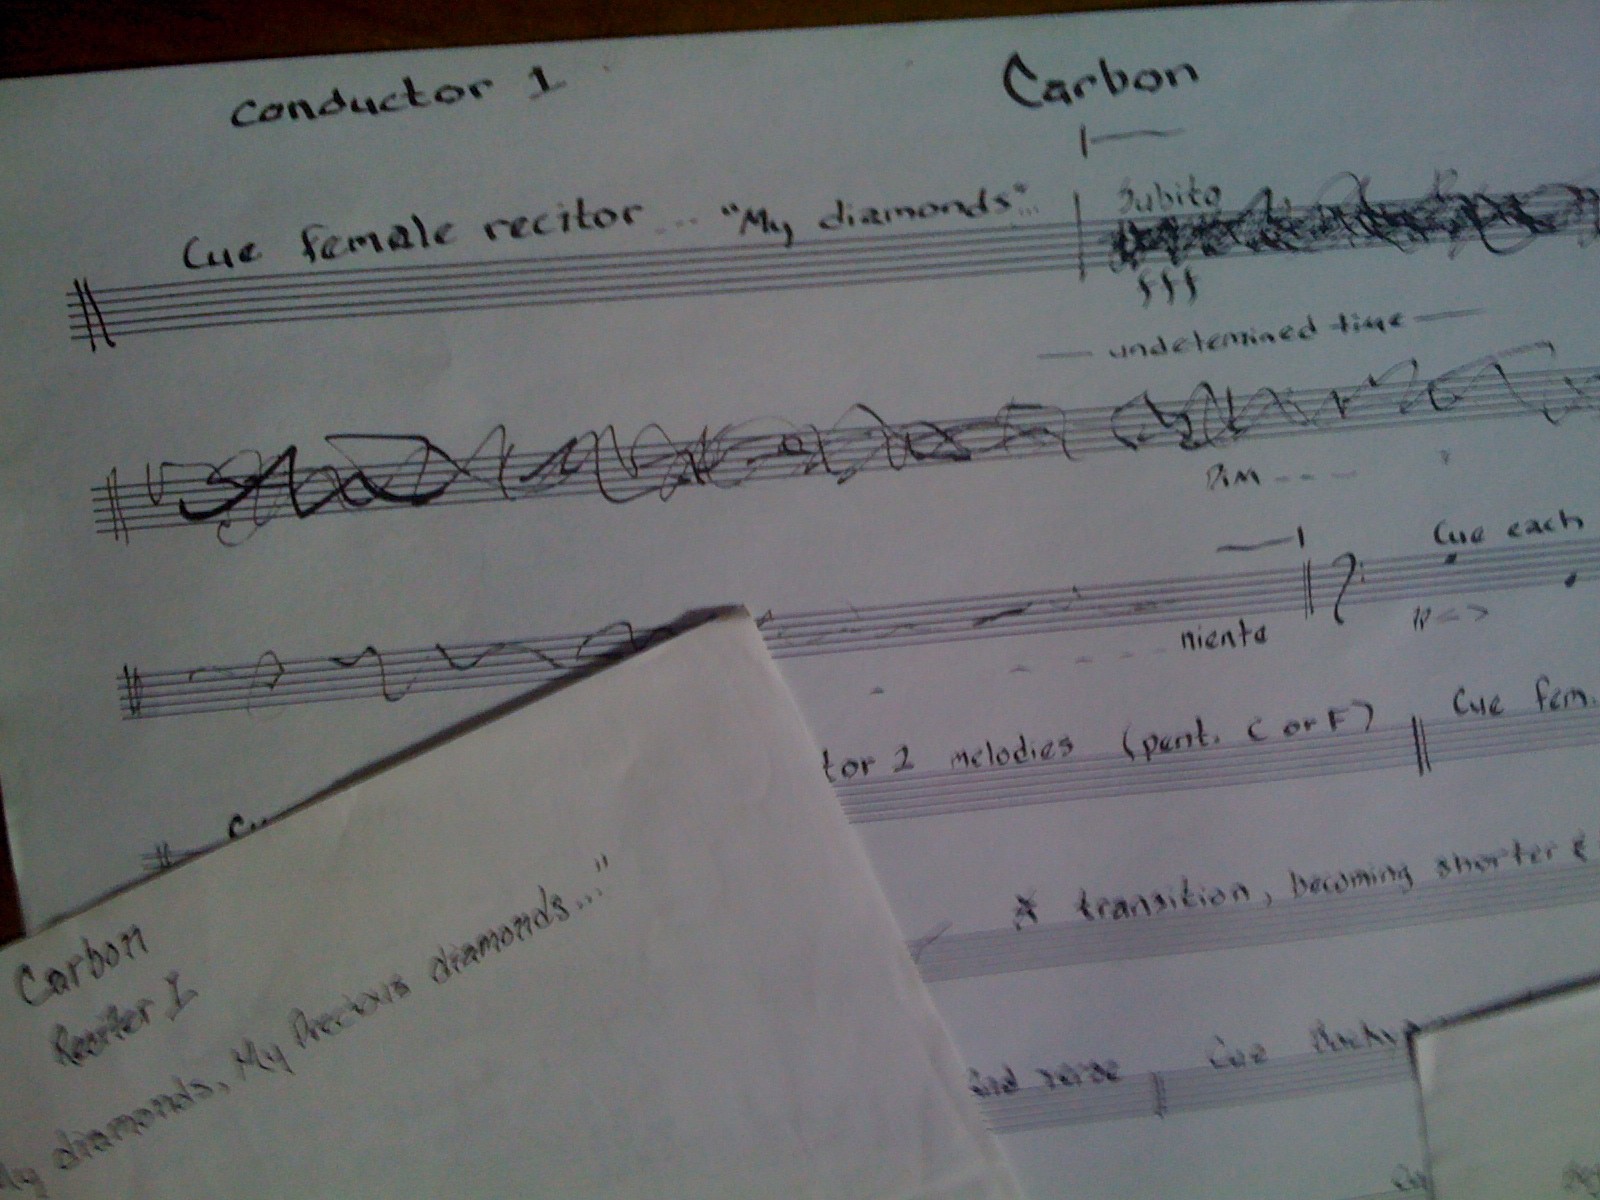 conductor 1
Carbon
Cue female recitor ... "My diamonds"...
Subito
fff
undetermined time
Dim
Cue each
niente
pp < >
tor 2 melodies (pent. C or F)
Cue fem.
* transition, becoming shorter &
2nd verse
Cue
Carbon
Reciter 1
My diamonds, My Precious diamonds..."